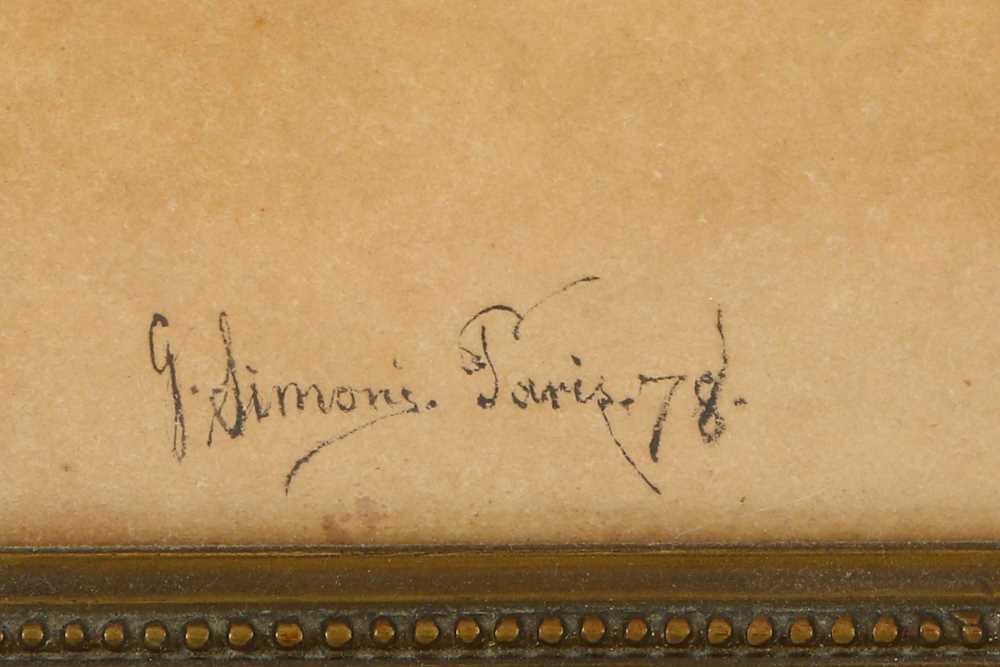 G. Simoni. Paris. 78.